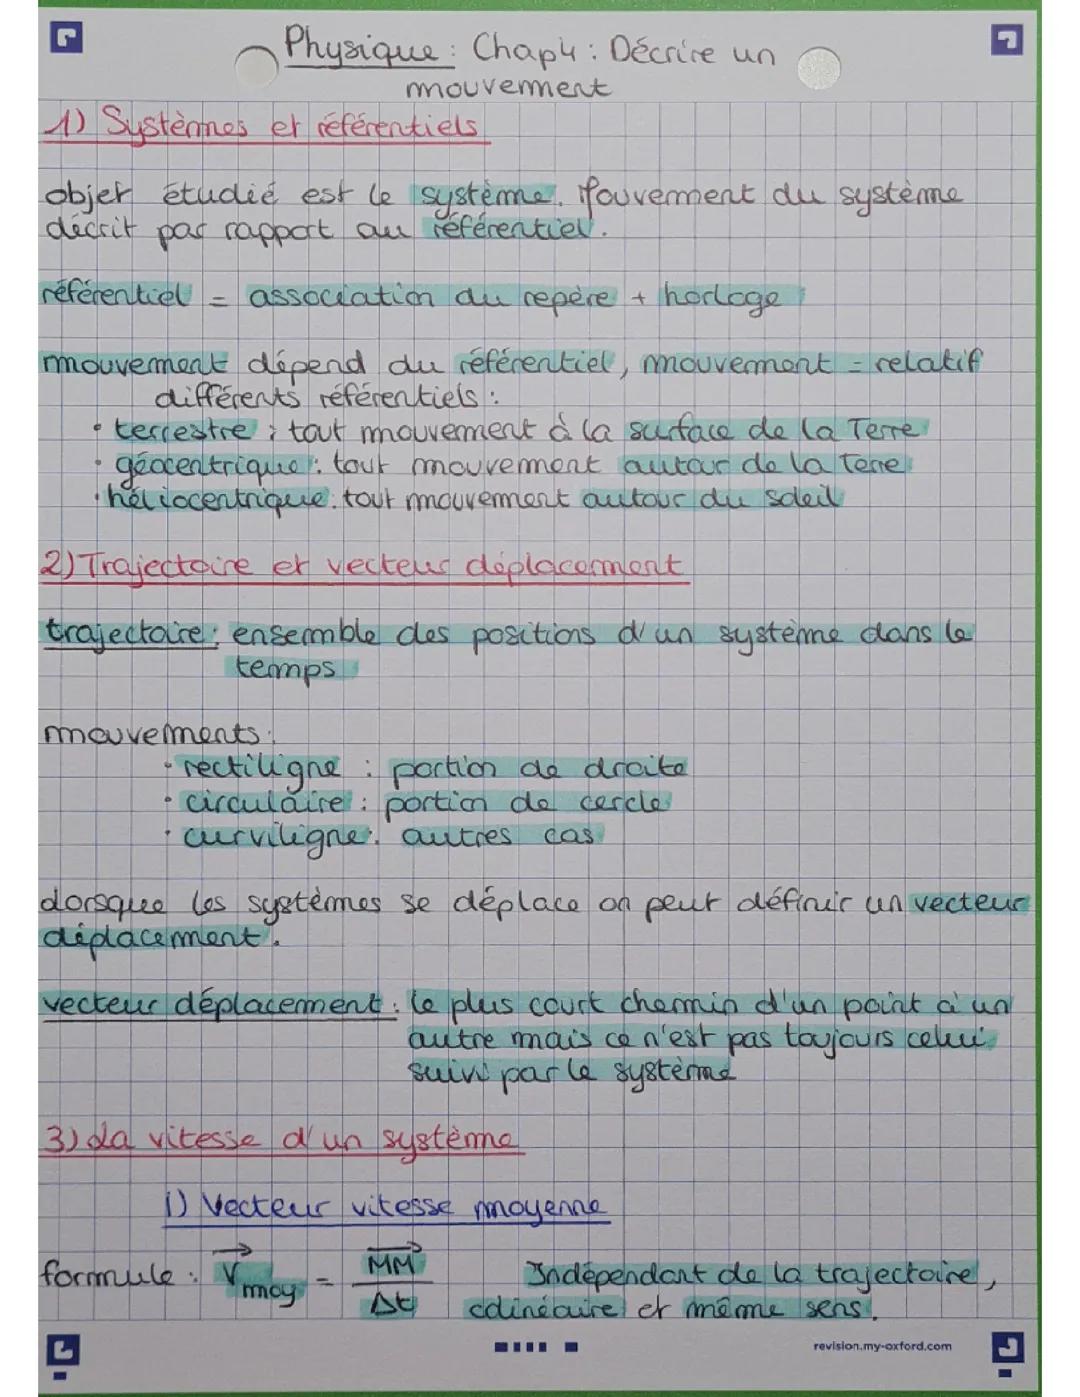 Physique : Chap 4 : Décrire un
mouvement
1) Systèmes et référentiels
objet étudié est le système. Mouvement du système
décrit par rapport au référentiel.
référentiel = association du repère + horloge
mouvement dépend du référentiel, mouvement = relatif
différents référentiels :
• terrestre : tout mouvement à la surface de la Terre
• géocentrique : tout mouvement autour de la Terre
• héliocentrique : tout mouvement autour du soleil
2) Trajectoire et vecteur déplacement
trajectoire : ensemble des positions d'un système dans le
temps
mouvements :
• rectiligne : portion de droite
• circulaire : portion de cercle
• curviligne : autres cas
Lorsque les systèmes se déplace on peut définir un vecteur
déplacement.
vecteur déplacement : le plus court chemin d'un point à un
autre mais ce n'est pas toujours celui
suivi par le système
3) La vitesse d'un système
1) Vecteur vitesse moyenne
formule : V⃗moy = MM⃗ / Δt Indépendant de la trajectoire,
colinéaire et même sens.
revision.my-oxford.com